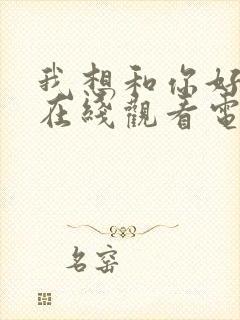 我想和你好
在綫觀看電
名窑